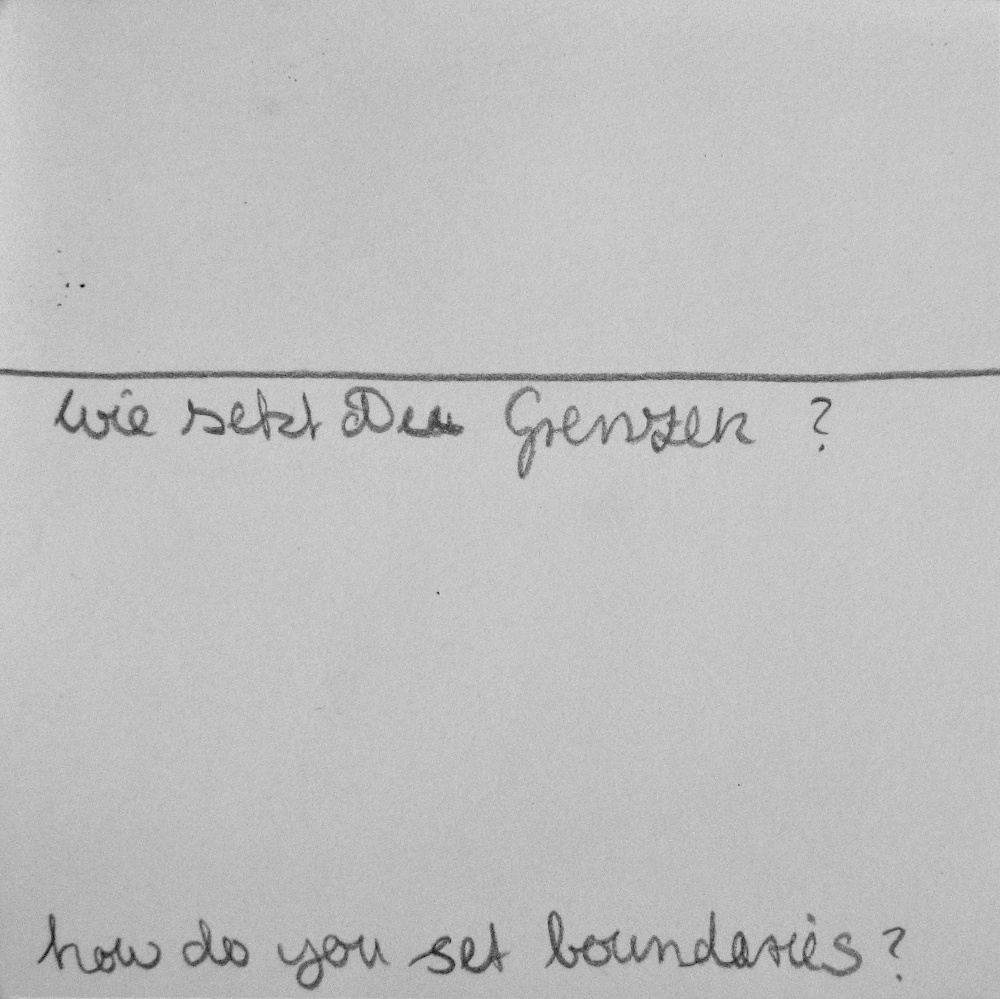 wie setzt Du Grenzen ?
how do you set boundaries ?